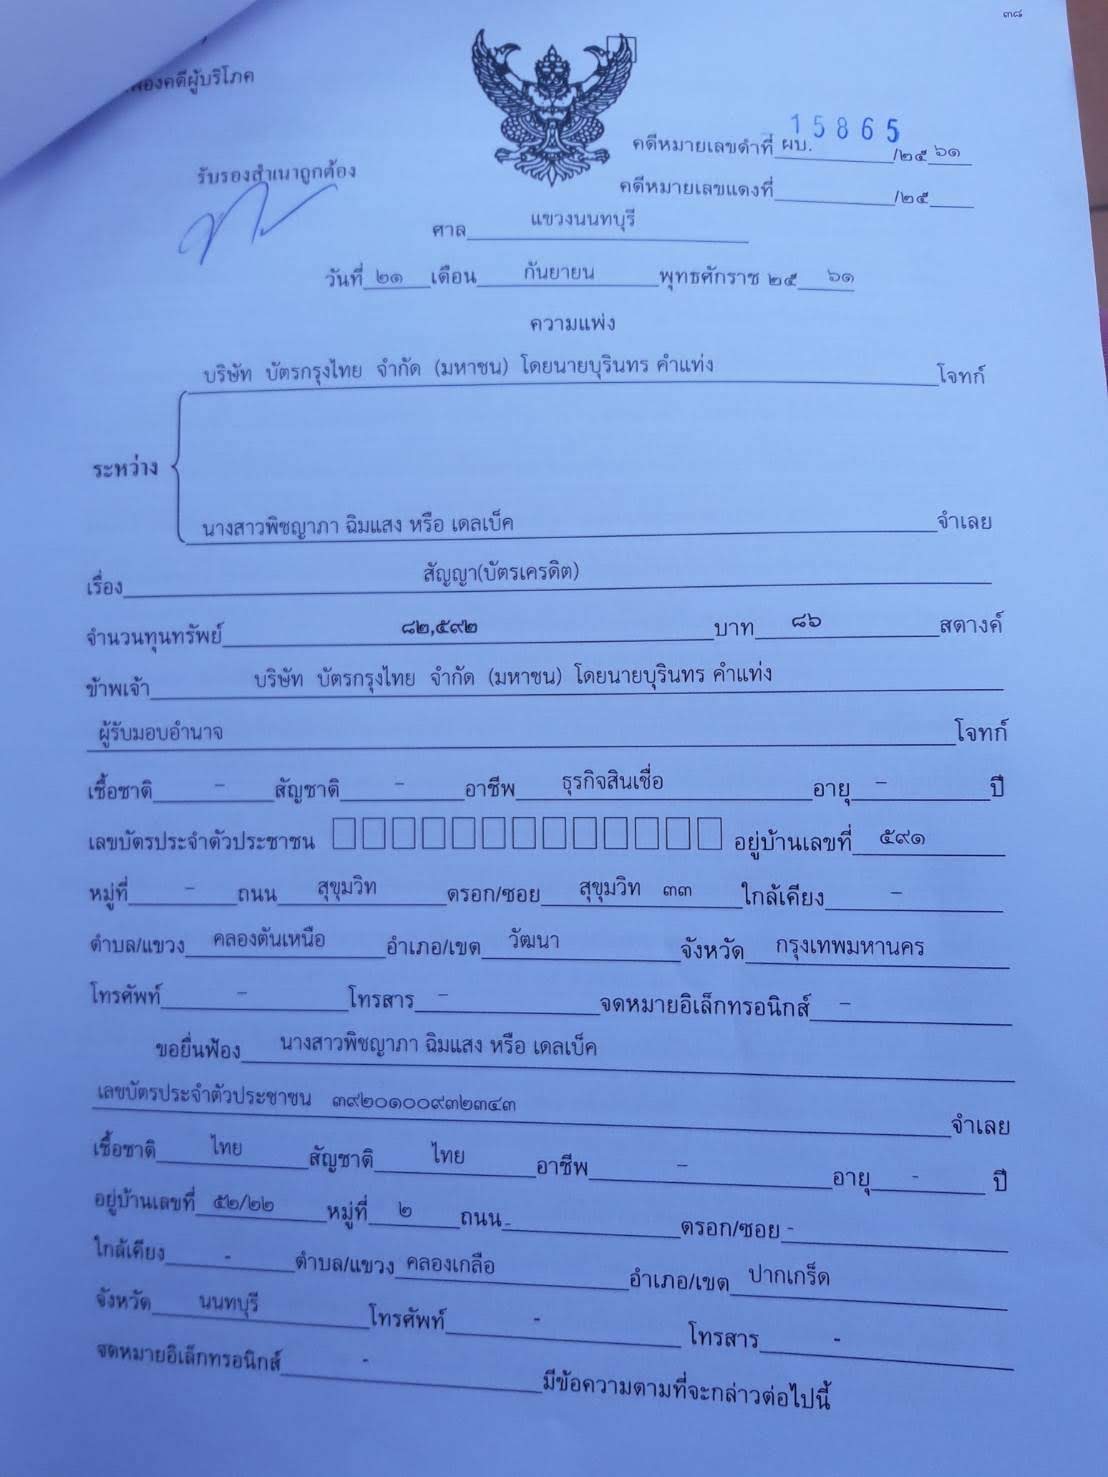 ๓๘
คดีผู้บริโภค
คดีหมายเลขดำที่ ผบ. 15865 /๒๕ ๖๑
รับรองสำเนาถูกต้อง
คดีหมายเลขแดงที่ /๒๕
ศาล แขวงนนทบุรี
วันที่ ๒๑ เดือน กันยายน พุทธศักราช ๒๕ ๖๑
ความแพ่ง
บริษัท บัตรกรุงไทย จำกัด (มหาชน) โดยนายบุรินทร คำแท่ง โจทก์
ระหว่าง
นางสาวพิชญาภา ฉิมแสง หรือ เดลเบ็ค จำเลย
เรื่อง สัญญา(บัตรเครดิต)
จำนวนทุนทรัพย์ ๘๒,๕๙๒ บาท ๘๖ สตางค์
ข้าพเจ้า บริษัท บัตรกรุงไทย จำกัด (มหาชน) โดยนายบุรินทร คำแท่ง
ผู้รับมอบอำนาจ โจทก์
เชื้อชาติ - สัญชาติ - อาชีพ ธุรกิจสินเชื่อ อายุ - ปี
เลขบัตรประจำตัวประชาชน อยู่บ้านเลขที่ ๕๙๑
หมู่ที่ - ถนน สุขุมวิท ตรอก/ซอย สุขุมวิท ๓๓ ใกล้เคียง -
ตำบล/แขวง คลองตันเหนือ อำเภอ/เขต วัฒนา จังหวัด กรุงเทพมหานคร
โทรศัพท์ - โทรสาร - จดหมายอิเล็กทรอนิกส์ -
ขอยื่นฟ้อง นางสาวพิชญาภา ฉิมแสง หรือ เดลเบ็ค
เลขบัตรประจำตัวประชาชน ๓๙๒๐๑๐๐๙๓๒๓๔๓ จำเลย
เชื้อชาติ ไทย สัญชาติ ไทย อาชีพ - อายุ - ปี
อยู่บ้านเลขที่ ๕๒/๒๒ หมู่ที่ ๒ ถนน - ตรอก/ซอย -
ใกล้เคียง - ตำบล/แขวง คลองเกลือ อำเภอ/เขต ปากเกร็ด
จังหวัด นนทบุรี โทรศัพท์ - โทรสาร -
จดหมายอิเล็กทรอนิกส์ - มีข้อความตามที่จะกล่าวต่อไปนี้